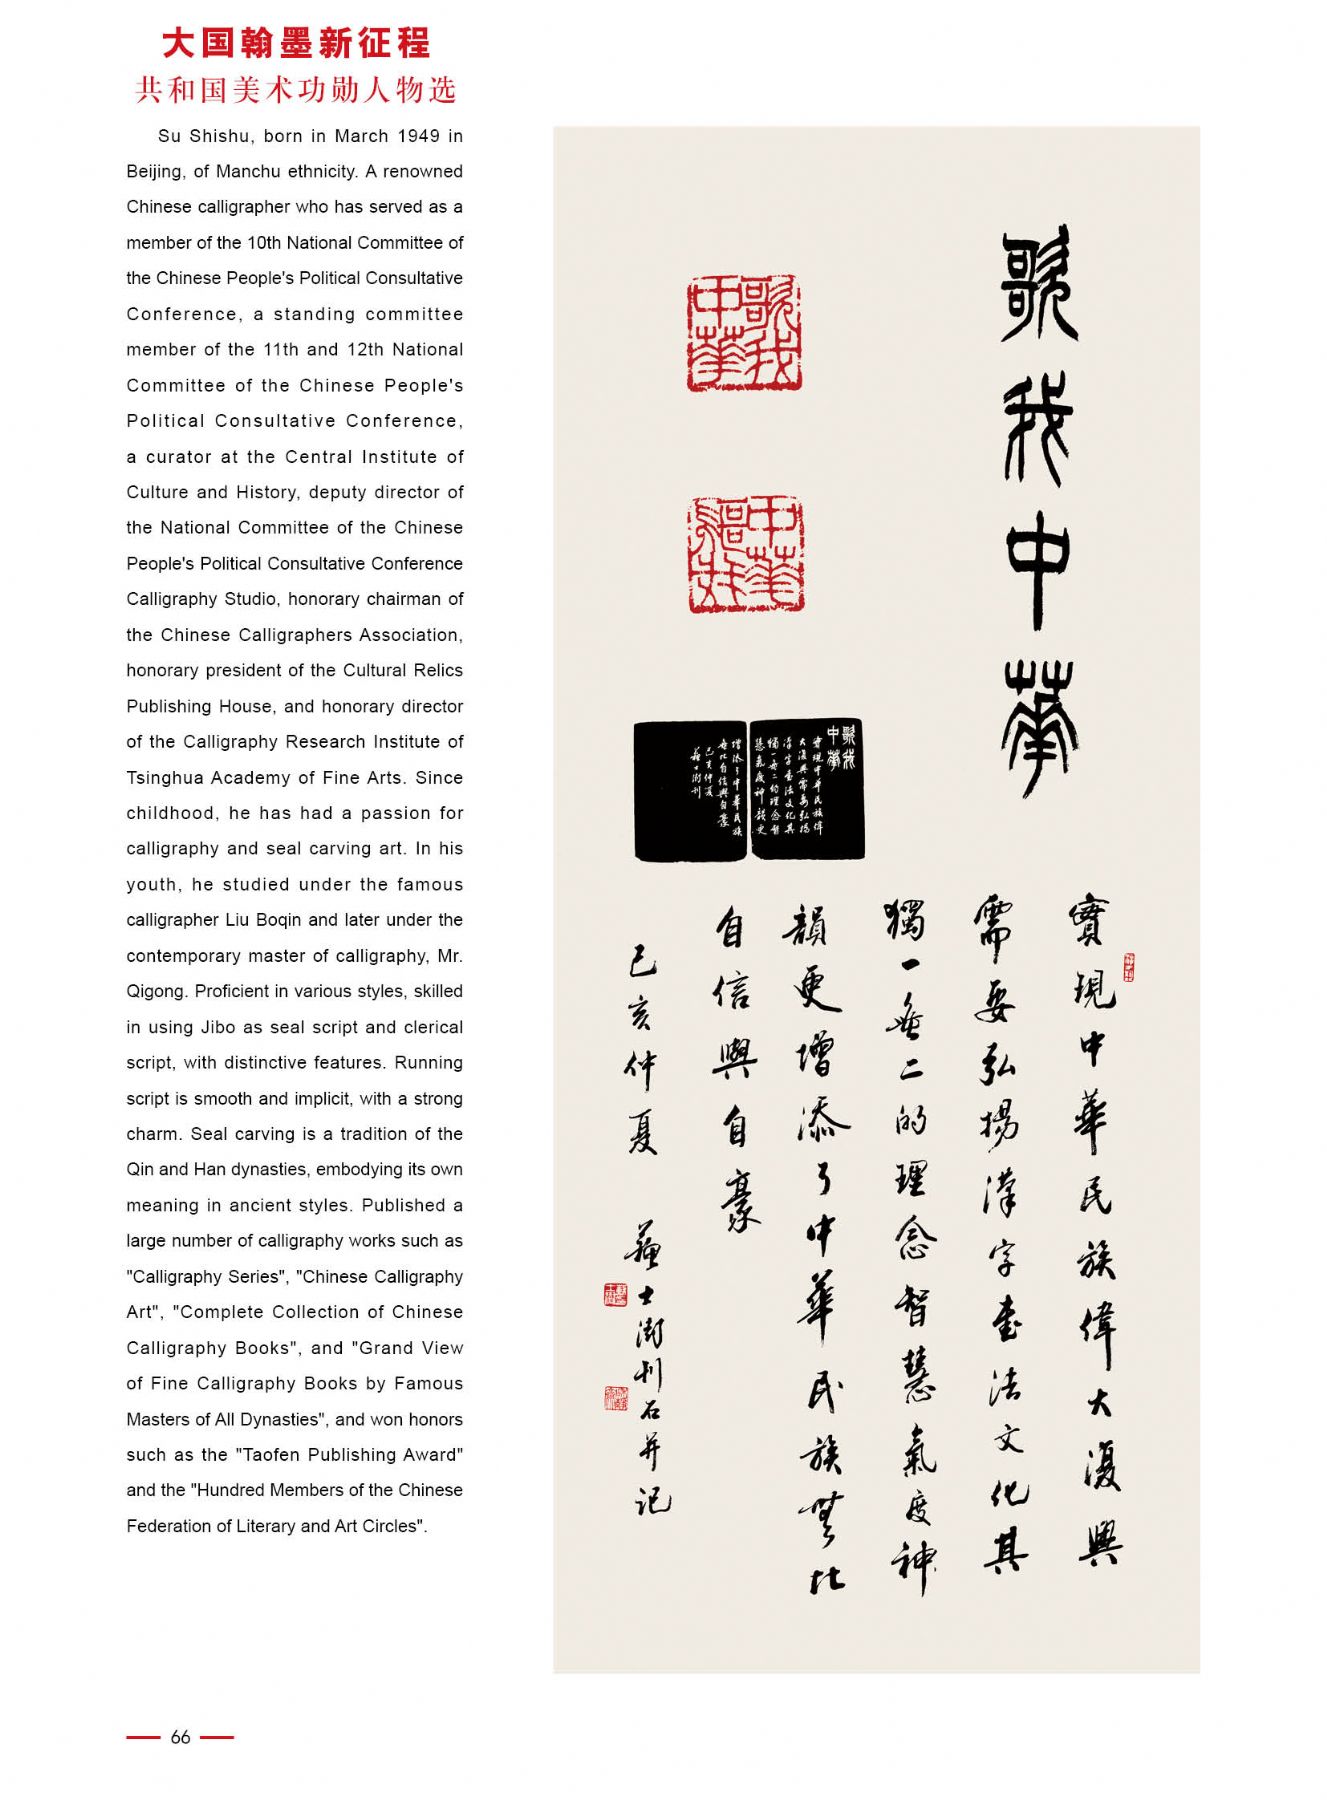 大国翰墨新征程
共和国美术功勋人物选
Su Shishu, born in March 1949 in
Beijing, of Manchu ethnicity. A renowned
Chinese calligrapher who has served as a
member of the 10th National Committee of
the Chinese People's Political Consultative
Conference, a standing committee
member of the 11th and 12th National
Committee of the Chinese People's
Political Consultative Conference,
a curator at the Central Institute of
Culture and History, deputy director of
the National Committee of the Chinese
People's Political Consultative Conference
Calligraphy Studio, honorary chairman of
the Chinese Calligraphers Association,
honorary president of the Cultural Relics
Publishing House, and honorary director
of the Calligraphy Research Institute of
Tsinghua Academy of Fine Arts. Since
childhood, he has had a passion for
calligraphy and seal carving art. In his
youth, he studied under the famous
calligrapher Liu Boqin and later under the
contemporary master of calligraphy, Mr.
Qigong. Proficient in various styles, skilled
in using Jibo as seal script and clerical
script, with distinctive features. Running
script is smooth and implicit, with a strong
charm. Seal carving is a tradition of the
Qin and Han dynasties, embodying its own
meaning in ancient styles. Published a
large number of calligraphy works such as
"Calligraphy Series", "Chinese Calligraphy
Art", "Complete Collection of Chinese
Calligraphy Books", and "Grand View
of Fine Calligraphy Books by Famous
Masters of All Dynasties", and won honors
such as the "Taofen Publishing Award"
and the "Hundred Members of the Chinese
Federation of Literary and Art Circles".
歌我中華
歌我
中華
歌我
中華
實現中華民族偉
大復興需要弘揚
漢字書法文化其
獨一無二的理念智
慧氣度神韻更
增添了中華民族
無比自信與自豪
己亥仲夏
蘇士澍刊
實現中華民族偉大復興
需要弘揚漢字書法文化其
獨一無二的理念智慧氣度神
韻更增添了中華民族無比
自信與自豪
己亥仲夏 蘇士澍刊石并记
66